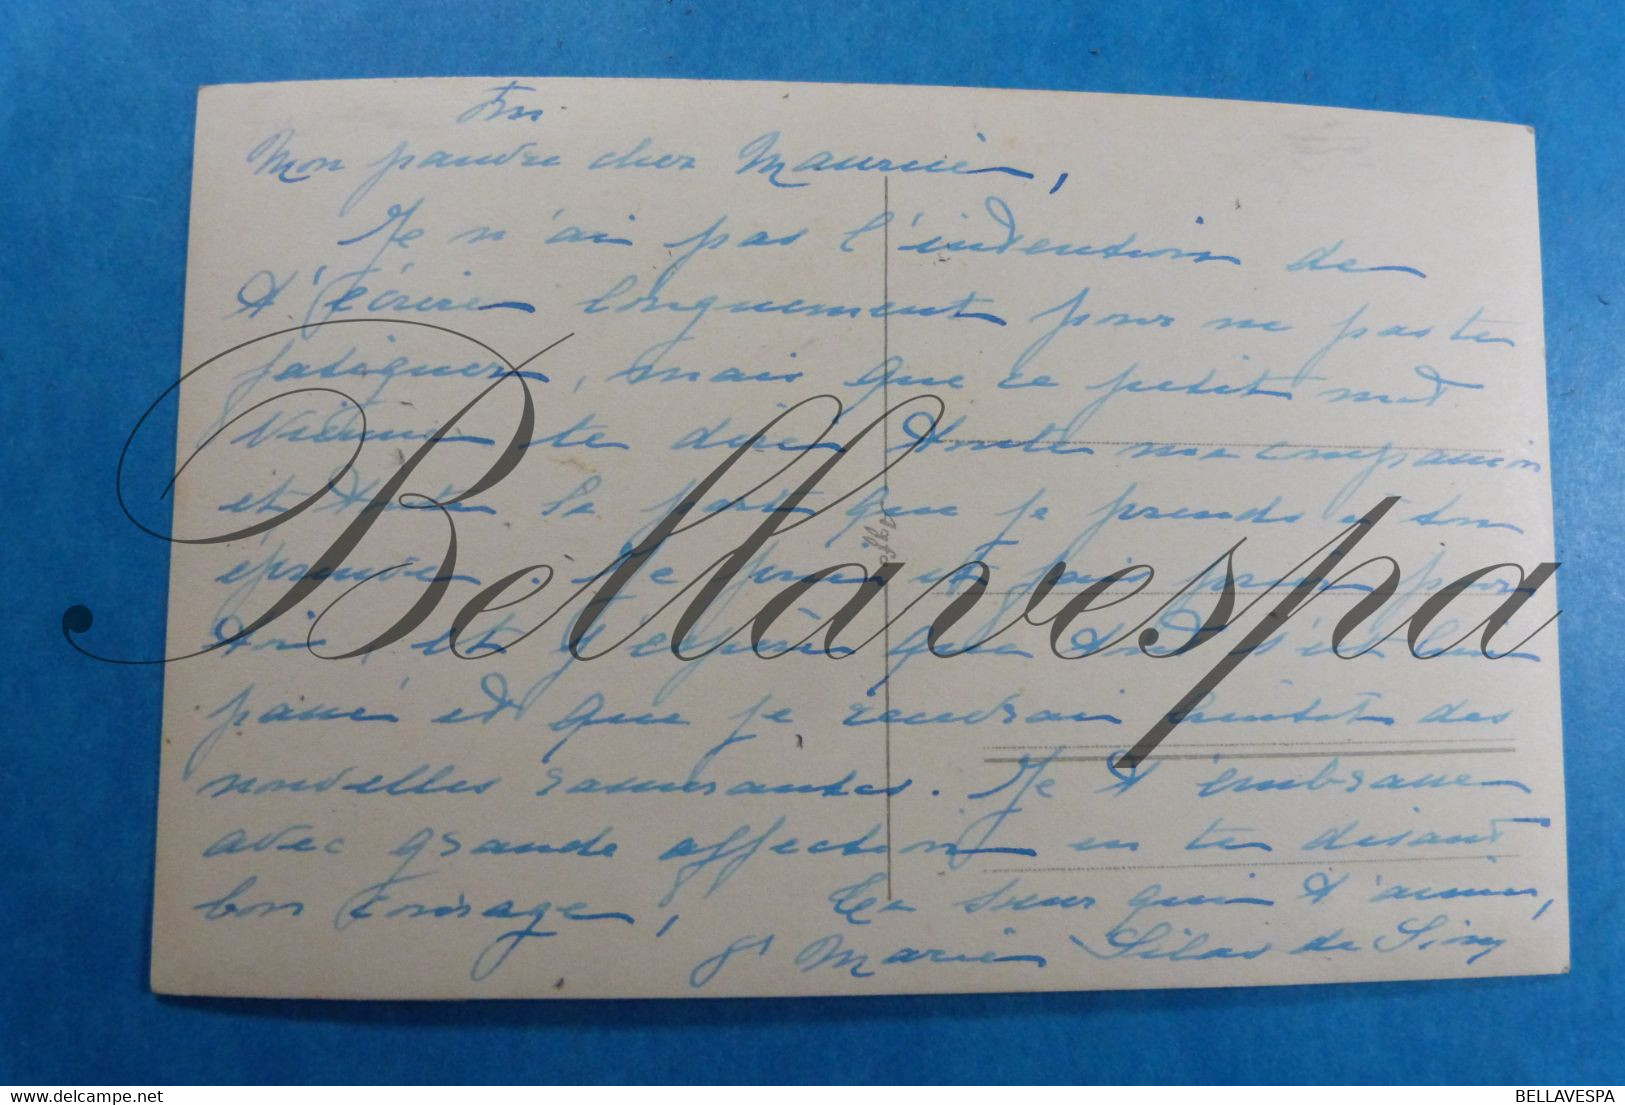 Mon pauvre cher Maurice,
Je n'ai pas l'intention de
t'écrire longuement pour ne pas te
fatiguer, mais que ce petit mot
vienne te dire toute ma compassion
et toute la part que je prends à ton
épreuve. Je prie et fais prier pour
toi, et j'espère que tout s'est bien
passé et que je recevrai bientôt des
nouvelles rassurantes. Je t'embrasse
avec grande affection en te disant
bon courage,
Ta sœur qui t'aime,
Sr Marie Silas de Sion
Agfa
Bellavespa
BELLAVESPA
delcampe.net